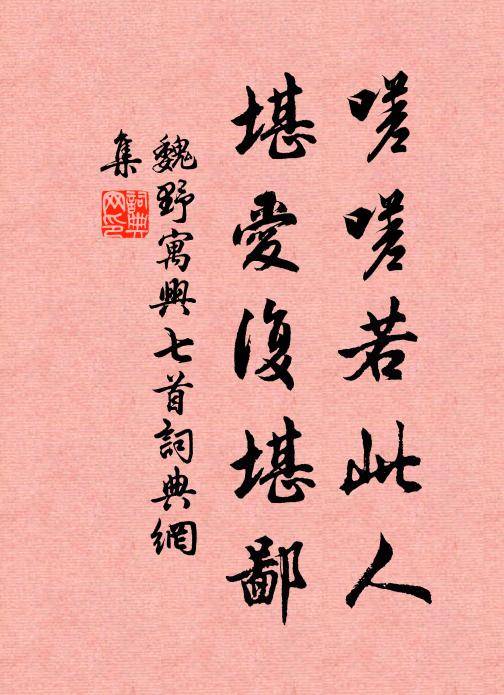 嗟嗟若此人
堪愛復堪鄙
魏野寓興七首詞典網
集
詞典
网印